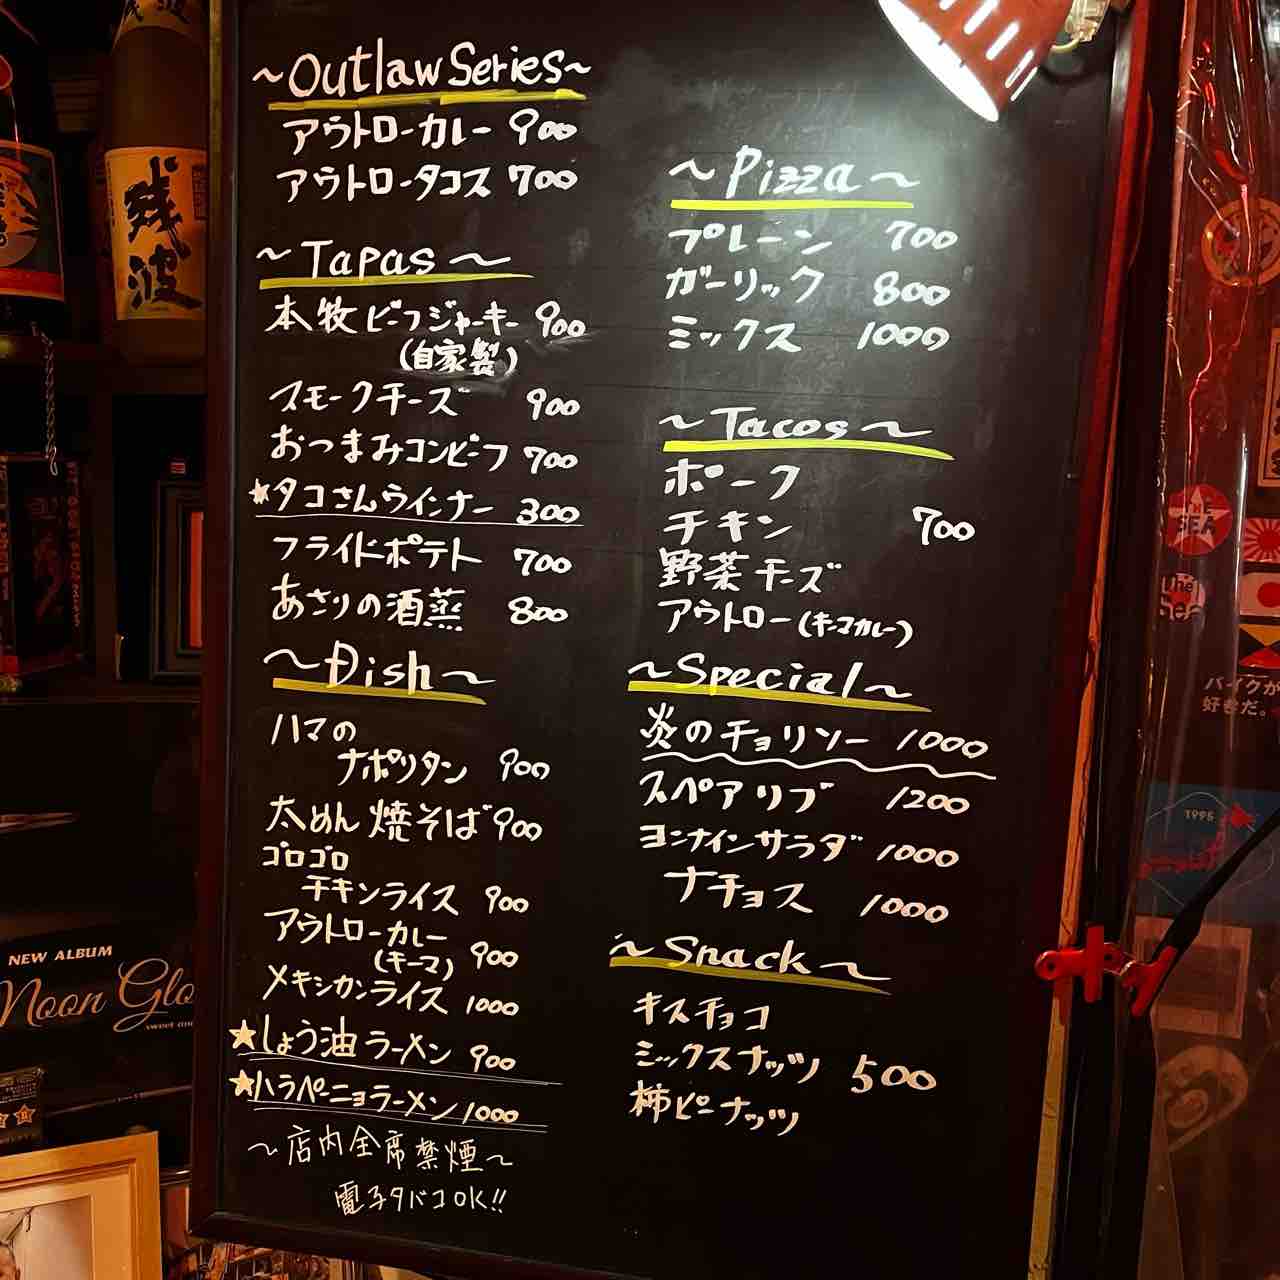 ~Outlaw Series~
アウトローカレー 900
アウトロータコス 700
~Tapas~
本牧ビーフジャーキー 900
(自家製)
スモークチーズ 900
おつまみコンビーフ 700
★タコさんウインナー 300
フライドポテト 700
あさりの酒蒸 800
~Dish~
ハマの
ナポリタン 900
太めん焼そば 900
ゴロゴロ
チキンライス 900
アウトローカレー
(キーマ) 900
メキシカンライス 1000
★しょう油ラーメン 900
★ハラペーニョラーメン 1000
~店内全席禁煙~
電子タバコOK!!
~Pizza~
プレーン 700
ガーリック 800
ミックス 1000
~Tacos~
ポーク
チキン 700
野菜チーズ
アウトロー(キーマカレー)
~Special~
炎のチョリソー 1000
スペアリブ 1200
ヨンナインサラダ 1000
ナチョス 1000
~Snack~
キスチョコ
ミックスナッツ 500
柿ピーナッツ
残波
NEW ALBUM
Noon Glo
THE
SEA
The
Sea
バイクが
好きだ。
1995